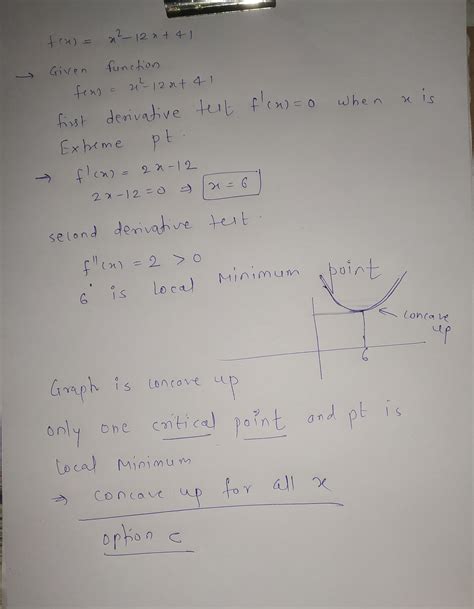 f(x) = x²-12x+41
→ Given function
f(x) = x²-12x+41
first derivative test f'(x)=0 when x is
Extreme pt.
→ f'(x) = 2x-12
2x-12=0 ⇒ x=6
second derivative test.
f"(x) = 2 > 0
6 is local minimum point
← concave up
6
Graph is concave up
only one critical point and pt is
local minimum
⇒ concave up for all x
option c